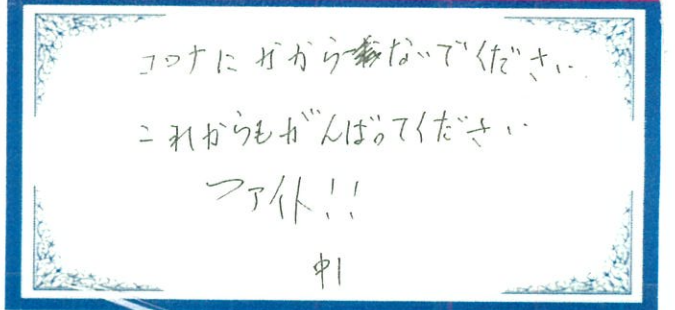 コロナにかからないでください
これからもがんばってください
ファイト!!
中1